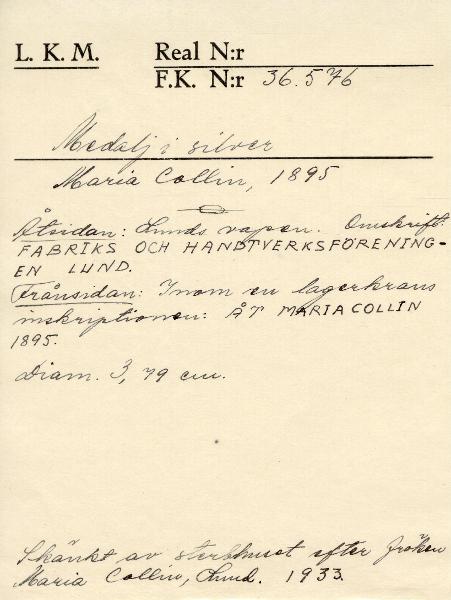 L. K. M. Real N:r
F.K. N:r 36.576
Medalj i silver
Maria Collin, 1895
Åtsidan: Lunds vapen. Omskrift:
FABRIKS OCH HANDTVERKSFÖRENING-
EN LUND.
Frånsidan: Inom en lagerkrans
inskriptionen: ÅT MARIA COLLIN
1895.
Diam. 3,79 cm.
Skänkt av sterbhuset efter fröken
Maria Collin, Lund. 1933.